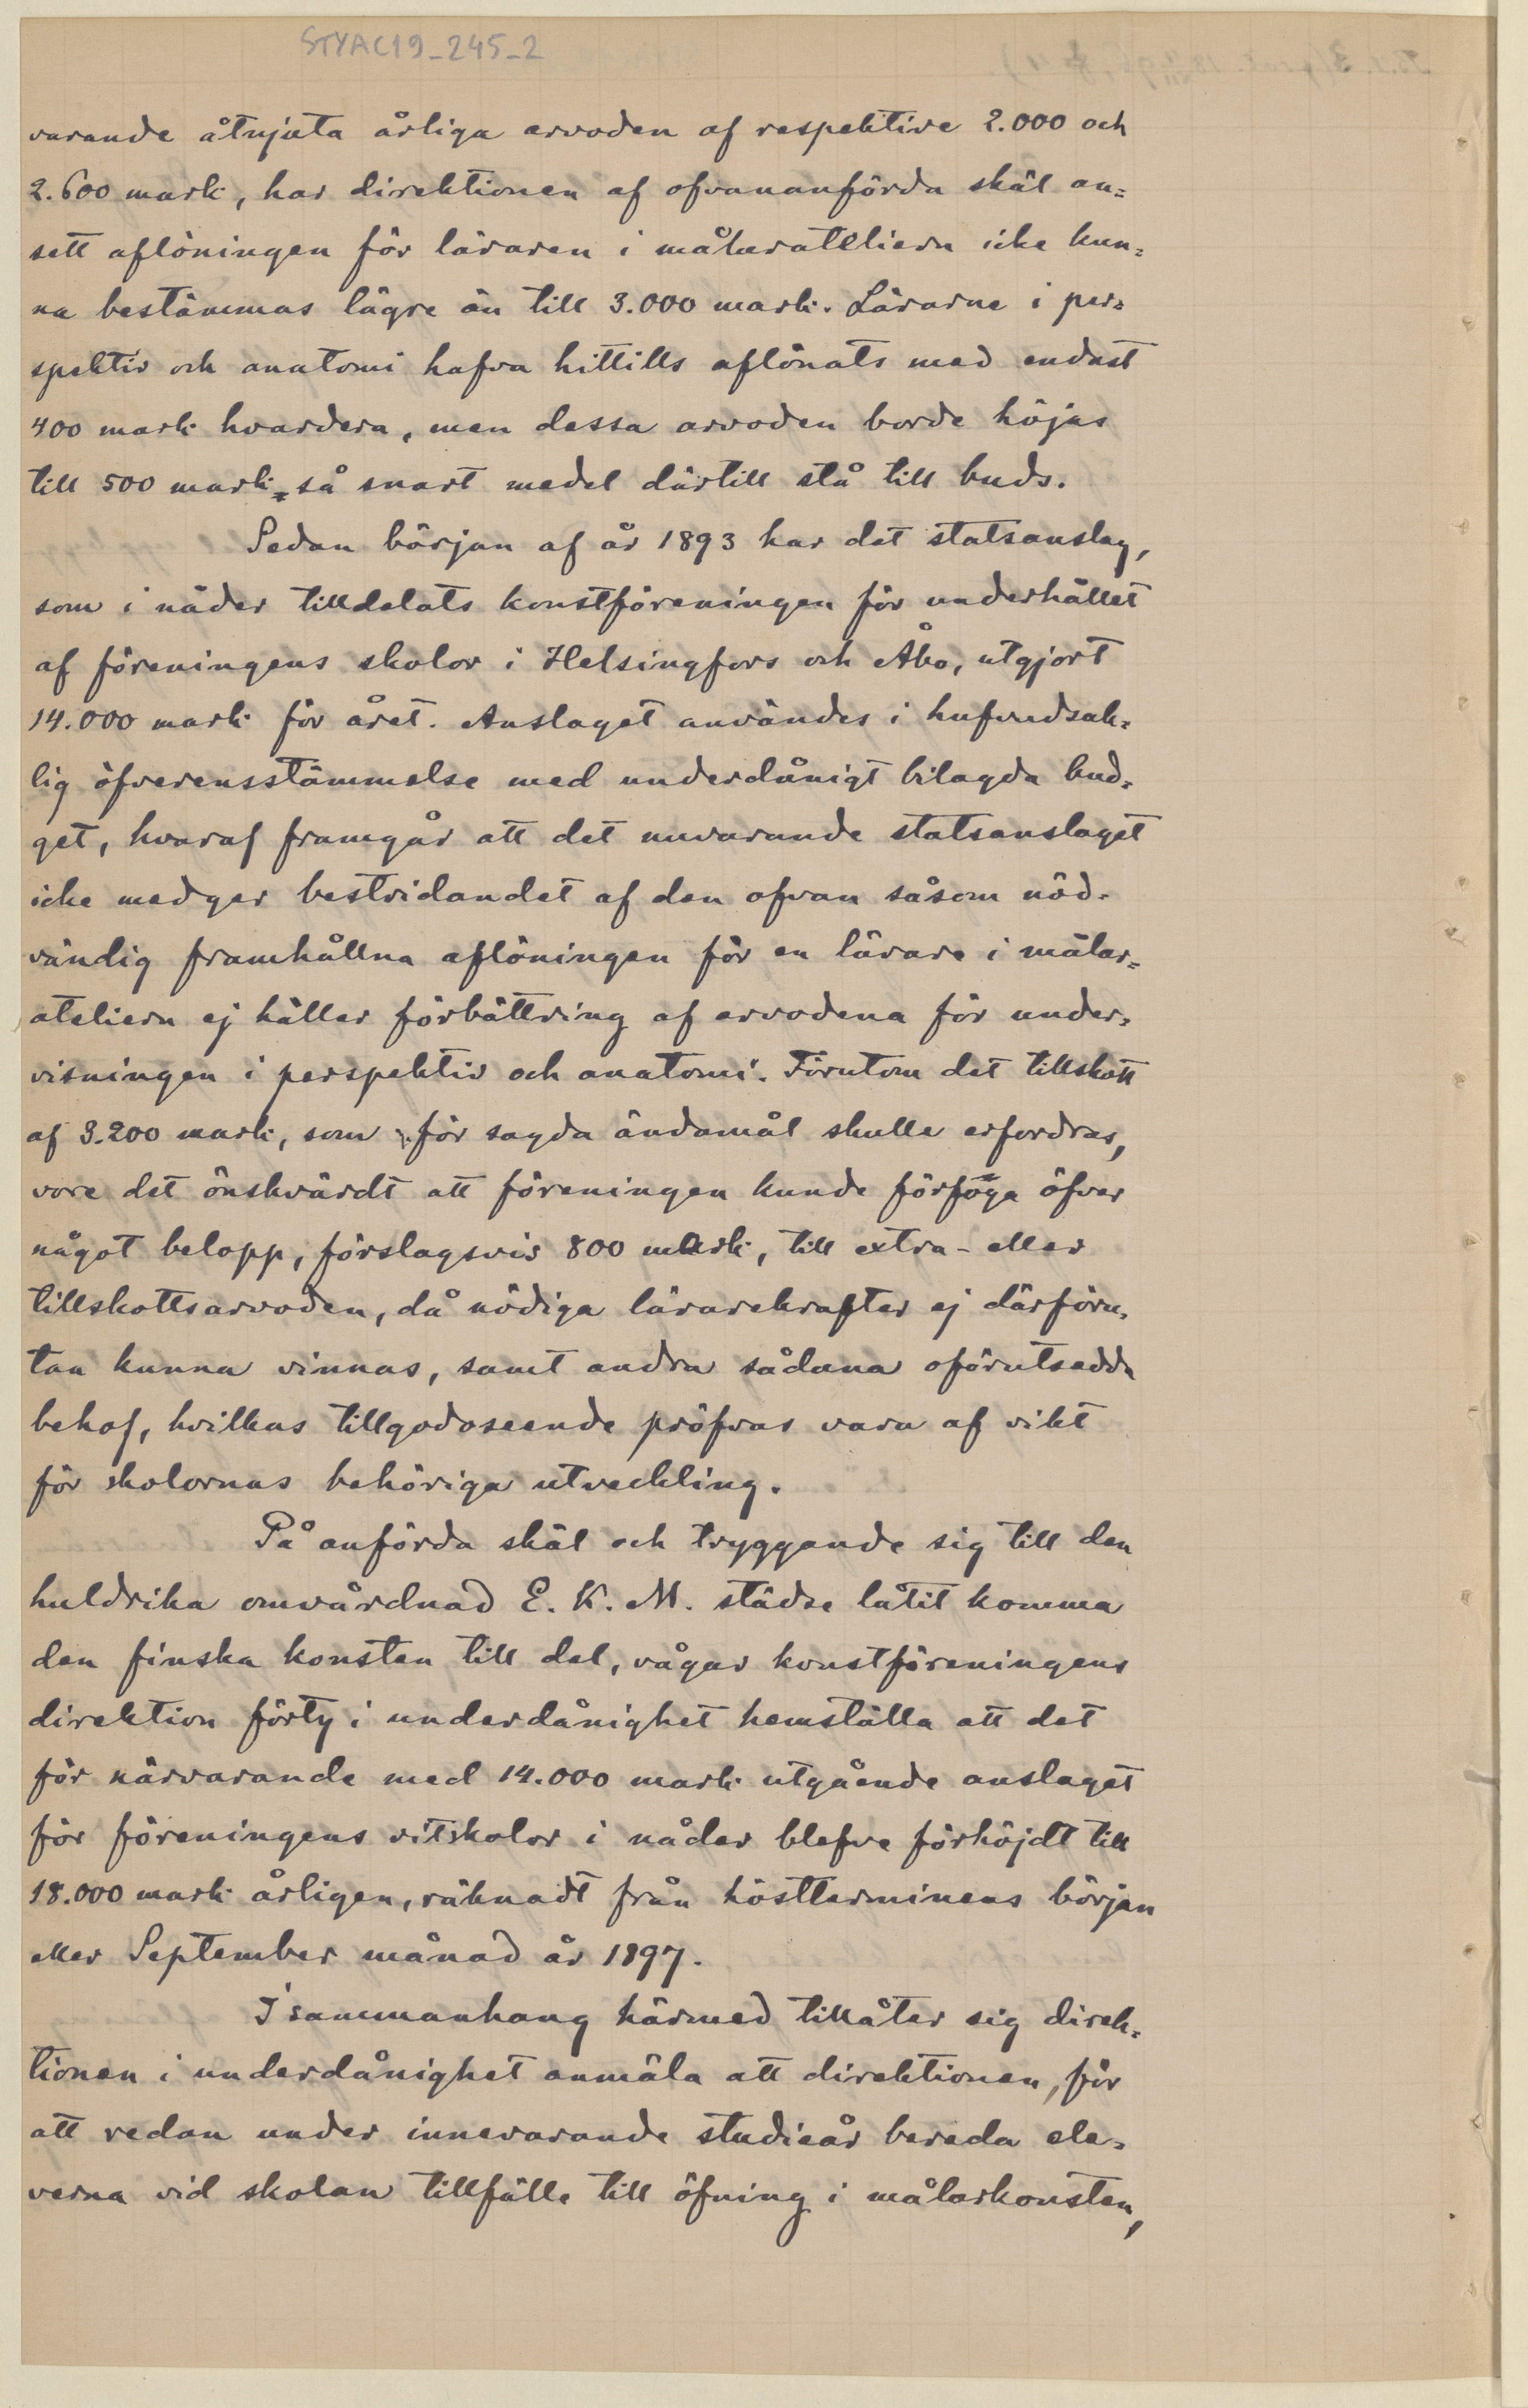 STYAC19_245_2
varande åtnjuta årliga arvoden af respektive 2.000 och
2.600 mark, har direktionen af ofvananförda skäl an=
sett aflöningen för läraren i målarateliern icke kun=
na bestämmas lägre än till 3.000 mark. Lärarne i per=
spektiv och anatomi hafva hittills aflönats med endast
400 mark hvardera, men dessa arvoden borde höjas
till 500 mark, så snart medel därtill stå till buds.
Sedan början af år 1893 har det statsanslag,
som i nåder tilldelats konstföreningen för underhållet
af föreningens skolor i Helsingfors och Åbo, utgjort
14.000 mark för året. Anslaget användes i hufvudsak=
lig öfverensstämmelse med underdånigt bilagda bud=
get, hvaraf framgår att det nuvarande statsanslaget
icke medger bestridandet af den ofvan såsom nöd=
vändig framhållna aflöningen för en lärare i målar=
ateliern ej häller förbättring af arvodena för under=
visningen i perspektiv och anatomi. Förutom det tillskott
af 3.200 mark, som för sagda ändamål skulle erfordras,
vore det önskvärdt att föreningen kunde förfoga öfver
något belopp, förslagsvis 800 mark, till extra- eller
tillskottsarvoden, då nödiga lärarekrafter ej därföru=
tan kunna vinnas, samt andra sådana oförutsedda
behof, hvilkas tillgodoseende pröfvas vara af vikt
för skolornas behöriga utveckling.
På anförda skäl och tryggande sig till den
huldrika omvårdnad E. K. M. städse låtit komma
den finska konsten till del, vågar konstföreningens
direktion förty i underdånighet hemställa att det
för närvarande med 14.000 mark utgående anslaget
för föreningens ritskolor i nåder blefve förhöjdt till
18.000 mark årligen, räknadt från höstterminens början
eller September månad år 1897.
I sammanhang härmed tillåter sig direk=
tionen i underdånighet anmäla att direktionen, för
att redan under innevarande studieår bereda ele=
verna vid skolan tillfälle till öfning i målarkonsten,